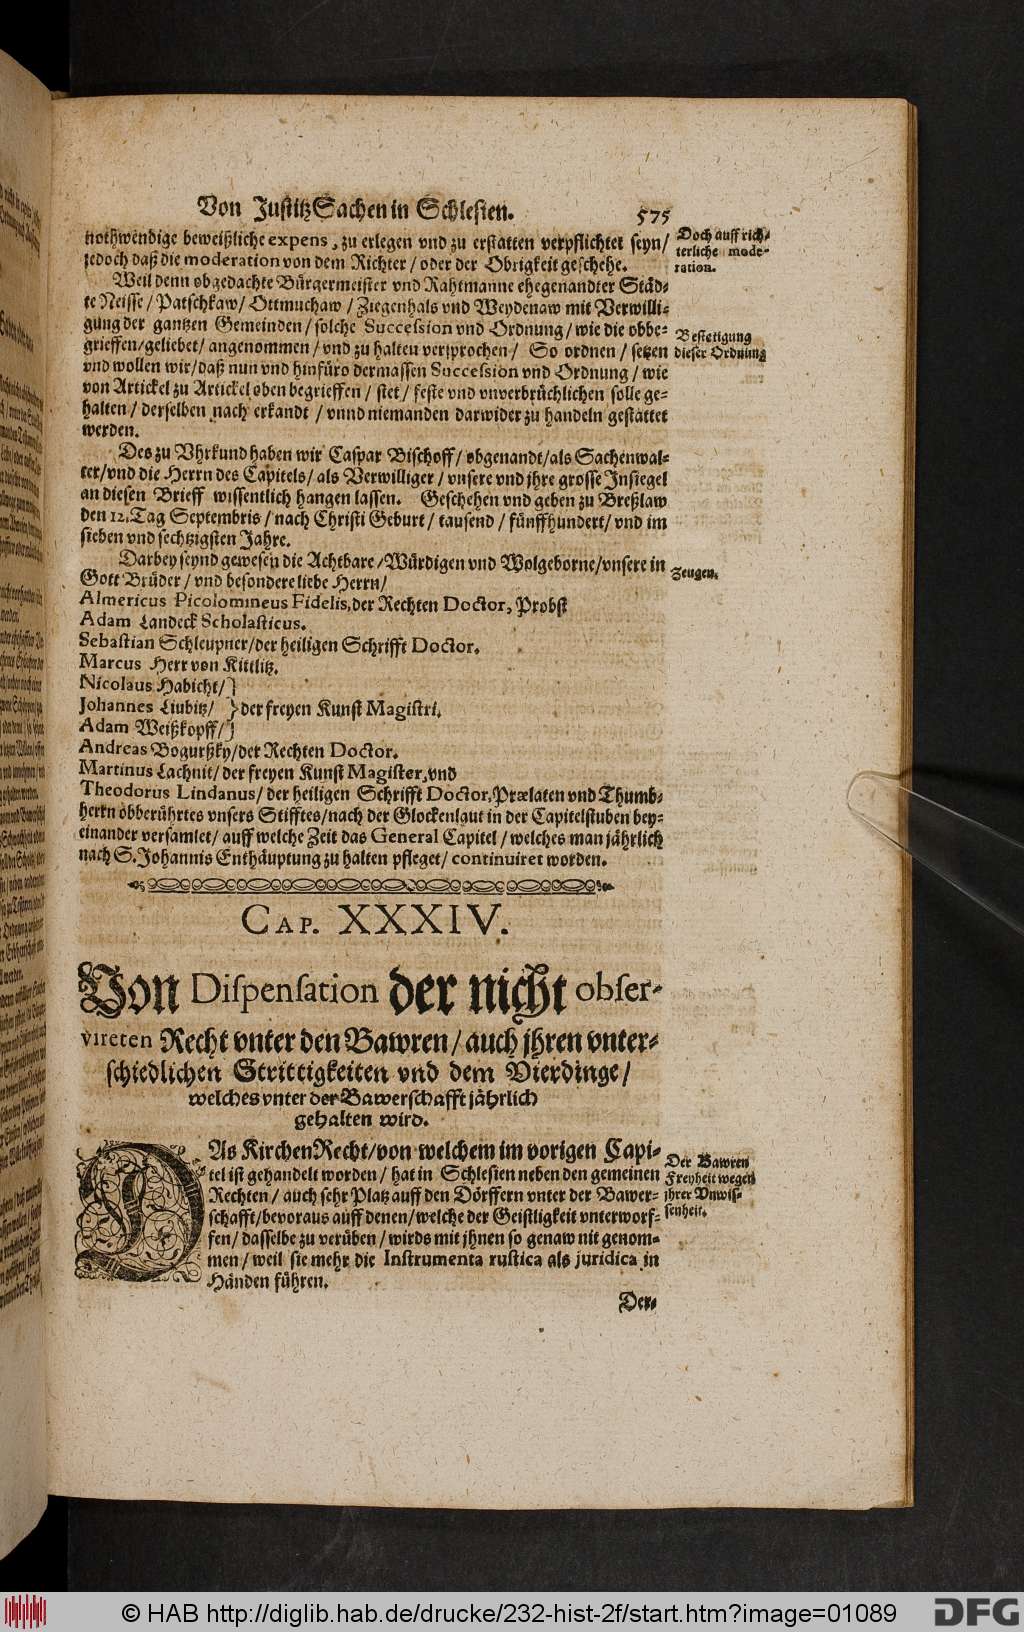 Von JustitzSachen in Schlesien. 575
nothwendige beweißliche expens, zu erlegen vnd zu erstatten verpflichtet seyn/
jedoch daß die moderation von dem Richter/ oder der Obrigkeit geschehe.
Doch auff rich-
terliche mode-
ration.
Weil denn obgedachte Bürgermeister vnd Rahtmanne ehegenandter Städ-
te Neisse/ Patschkaw/ Ottmuchaw/ Ziegenhals vnd Weydenaw mit Verwilli-
gung der gantzen Gemeinden/ solche Succession vnd Ordnung/ wie die obbe-
grieffen/ geliebet/ angenommen/ vnd zu halten versprochen/ So ordnen/ setzen
vnd wollen wir/ daß nun vnd hinfüro dermassen Succession vnd Ordnung/ wie
von Artickel zu Artickel oben begrieffen/ stet/ feste vnd vnverbrüchlichen solle ge-
halten/ derselben nach erkandt/ vnnd niemanden darwider zu handeln gestattet
werden.
Bestetigung
dieser Ordnung
Des zu Vhrkund haben wir Caspar Bischoff/ obgenandt/ als Sachenwal-
ter/ vnd die Herrn des Capitels/ als Verwilliger/ vnsere vnd jhre grosse Insiegel
an diesen Brieff wissentlich hangen lassen. Geschehen vnd geben zu Breßlaw
den 12. Tag Septembris/ nach Christi Geburt/ tausend/ fünffhundert/ vnd im
sieben vnd sechtzigsten Jahre.
Darbey seynd gewesen die Achtbare/ Würdigen vnd Wolgeborne/ vnsere in
Gott Brüder/ vnd besondere liebe Herrn/
Zeugen.
Almericus Picolomineus Fidelis, der Rechten Doctor, Probst
Adam Landeck Scholasticus.
Sebastian Schleupner/ der heiligen Schrifft Doctor.
Marcus Herr von Kittlitz.
Nicolaus Habicht/ }
Johannes Liubitz/ } der freyen Kunst Magistri.
Adam Weißkopff/ }
Andreas Bogurßky/ der Rechten Doctor.
Martinus Lachnit/ der freyen Kunst Magister, vnd
Theodorus Lindanus/ der heiligen Schrifft Doctor, Prælaten vnd Thumb-
herrn obberührtes vnsers Stifftes/ nach der Glockenlaut in der Capitelstuben bey-
einander versamlet/ auff welche Zeit das General Capitel/ welches man jährlich
nach S. Johannis Enthäuptung zu halten pfleget/ continuiret worden.
CAP. XXXIV.
Von Dispensation der nicht obser-
vireten Recht vnter den Bawren/ auch jhren vnter-
schiedlichen Strittigkeiten vnd dem Vierdinge/
welches vnter der Bawerschafft jährlich
gehalten wird.
DAs KirchenRecht/ von welchem im vorigen Capi-
tel ist gehandelt worden/ hat in Schlesien neben den gemeinen
Rechten/ auch sehr Platz auff den Dörffern vnter der Bawer-
schafft/ bevoraus auff denen/ welche der Geistligkeit vnterworf-
fen/ dasselbe zu verüben/ wirds mit jhnen so genaw nit genom-
men/ weil sie mehr die Instrumenta rustica als juridica in
Händen führen.
Der Bawren
Freyheit wegen
jhrer Vnwis-
senheit.
Der-
© HAB http://diglib.hab.de/drucke/232-hist-2f/start.htm?image=01089
DFG